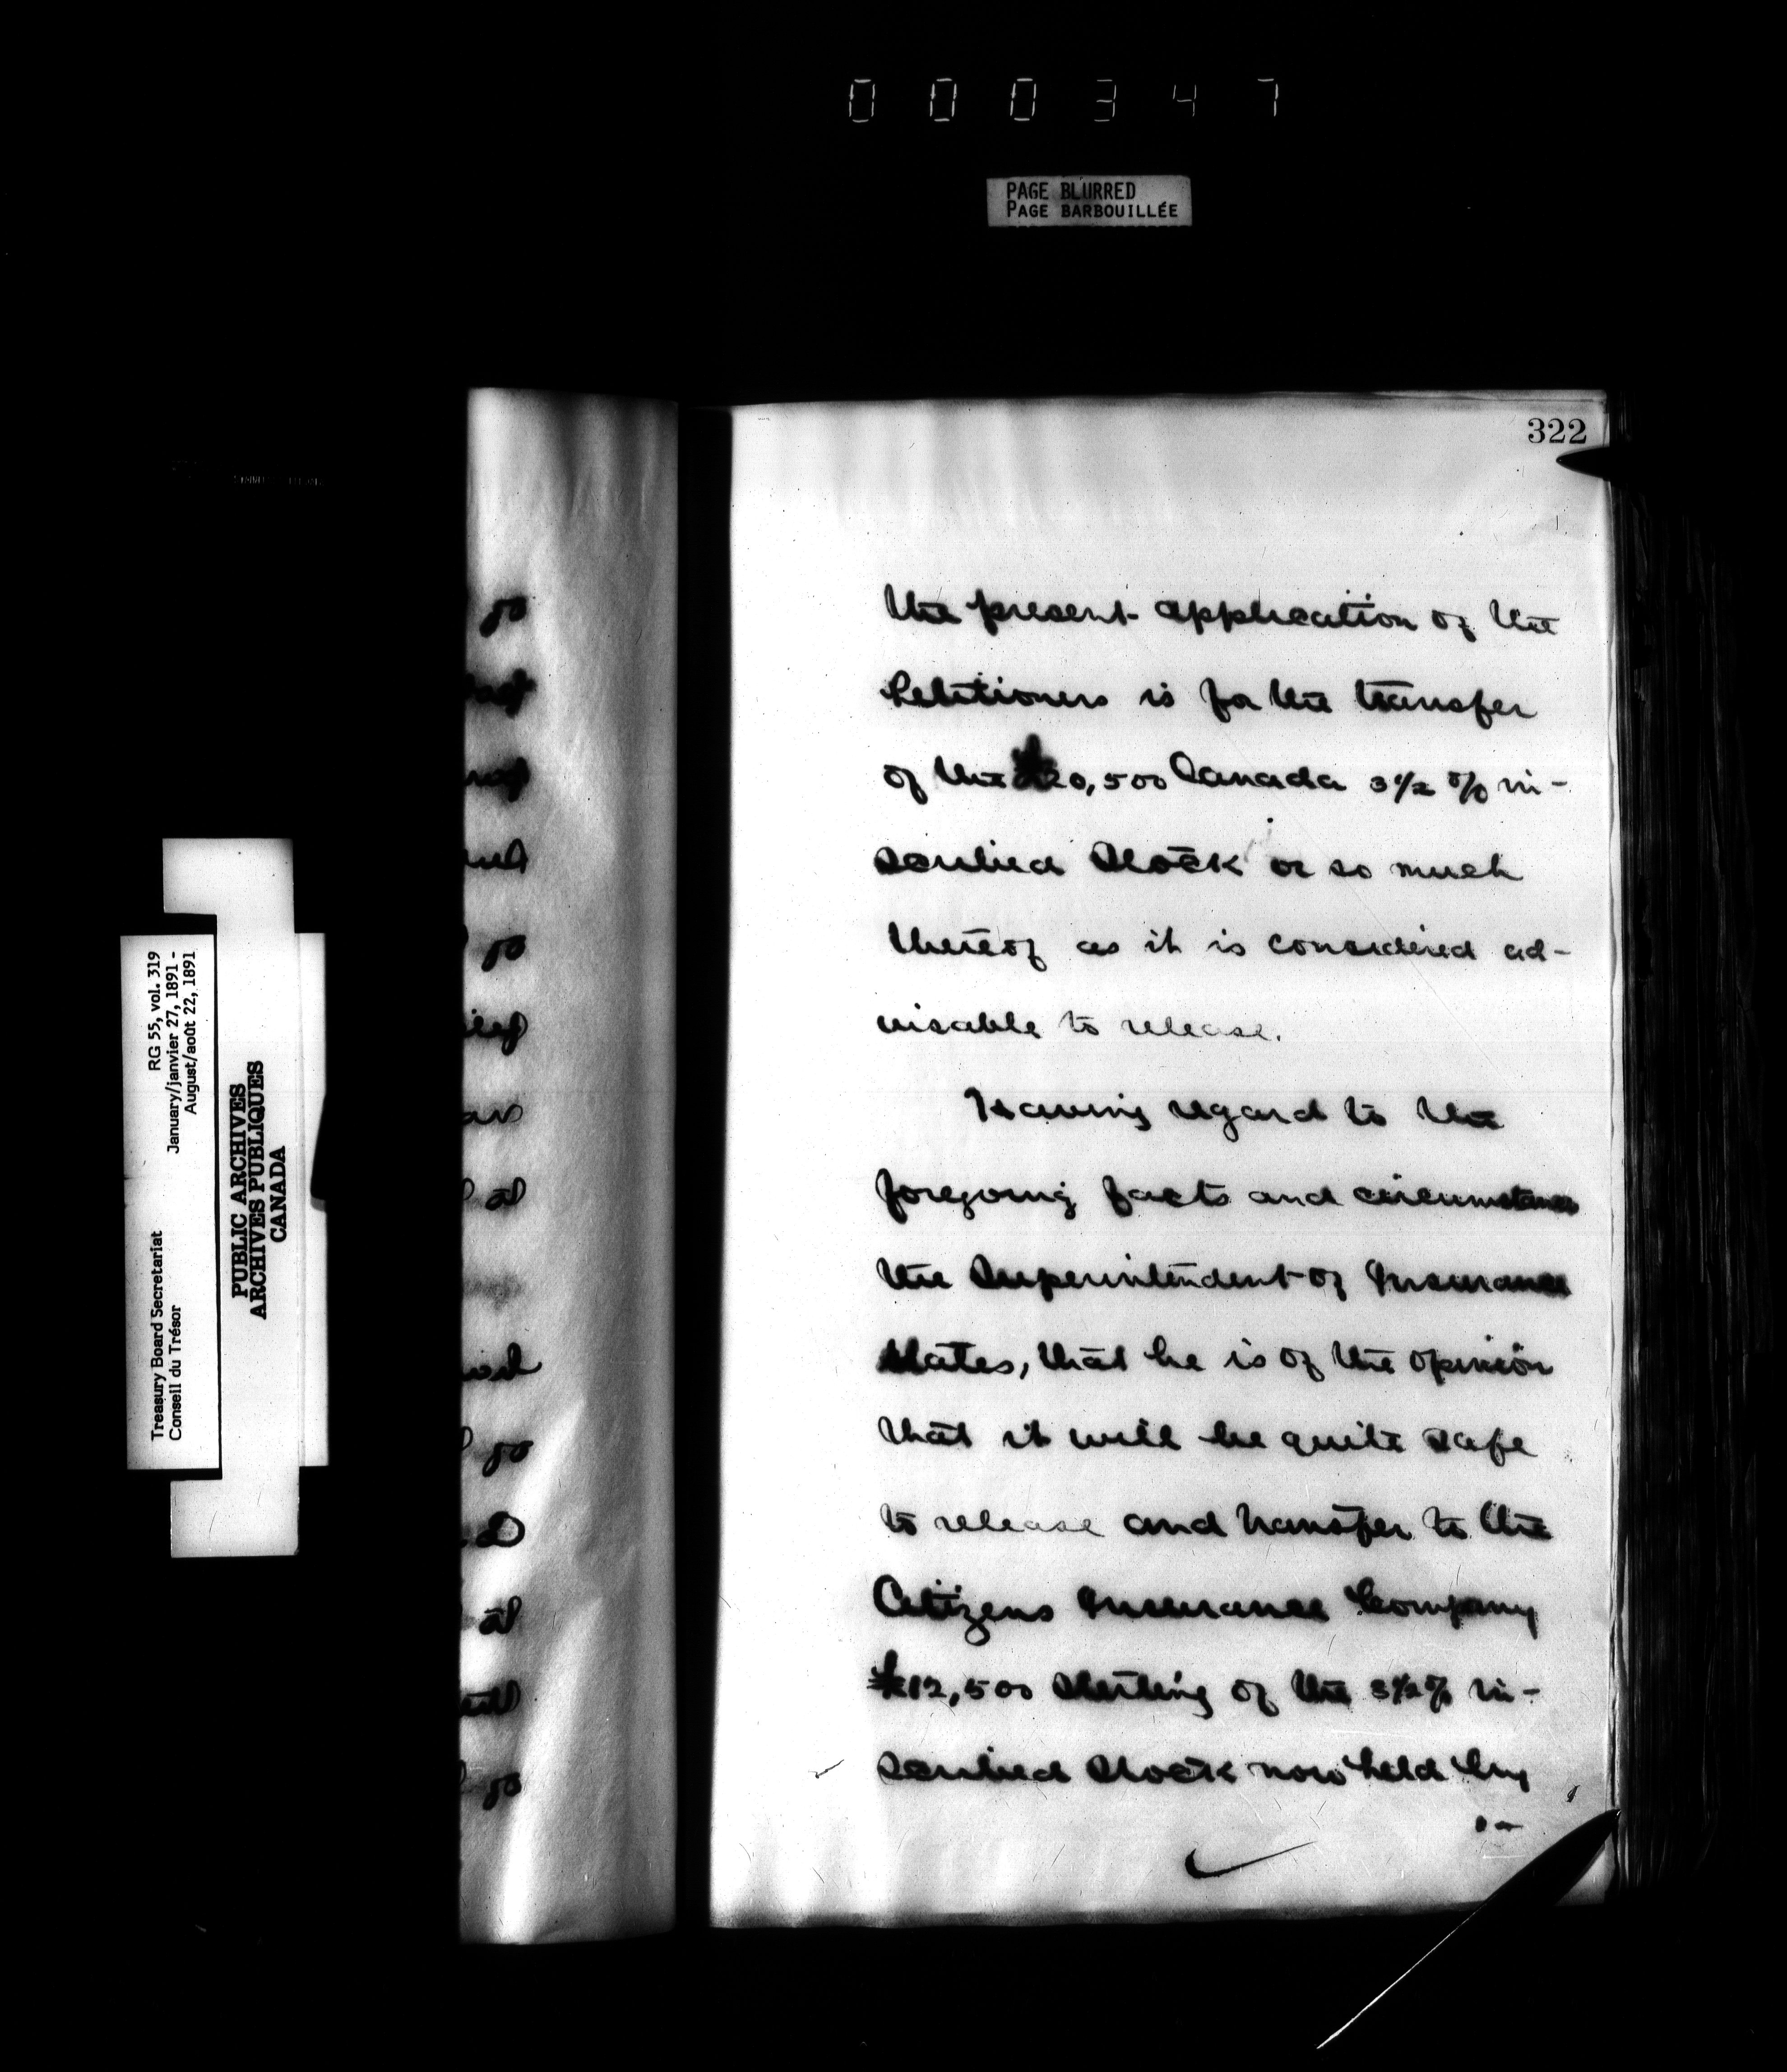 000347
PAGE BLURRED
PAGE BARBOUILLÉE
322
the present application of the
Petitioners is for the transfer
of the £20,500 Canada 3½ % in-
scribed Stock or so much
thereof as it is considered ad-
visable to release.
Having regard to the
foregoing facts and circumstances
the Superintendent of Insurance
states, that he is of the opinion
that it will be quite safe
to release and transfer to the
Citizens Insurance Company
£12,500 Sterling of the 3½% in-
scribed Stock now held by
Treasury Board Secretariat RG 55, vol. 319
Conseil du Trésor January/janvier 27, 1891 -
August/août 22, 1891
PUBLIC ARCHIVES
ARCHIVES PUBLIQUES
CANADA